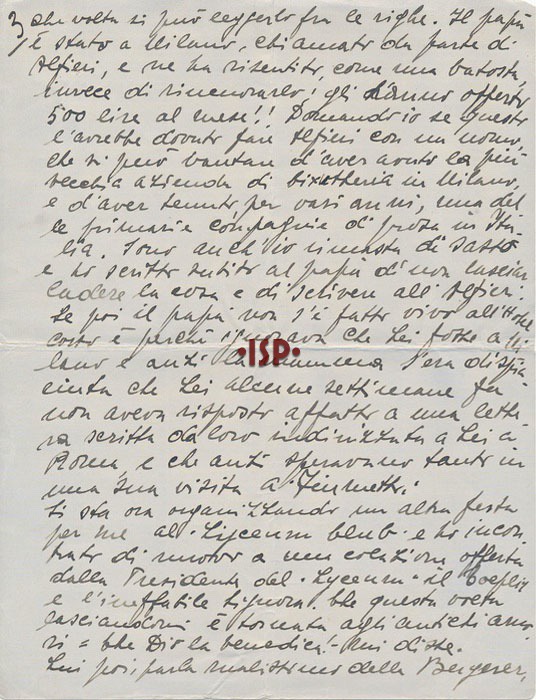 3) che volta si può leggerlo fra le righe. Il papà
è stato a Milano, chiamato da parte di
Alfieri, e ne ha risentito, come una batosta,
invece di rincuorarlo! gli hanno offerto
500 lire al mese!! Domando io se questo
l'avrebbe dovuto fare Alfieri con un uomo,
che si può vantare d'aver avuto la più
vecchia azienda di bixotheria in Milano,
e d'aver tenuto per vari anni, una del
le primarie compagnie di prosa in Ita-
lia. Sono anch'io rimasta di sasso
e ho scritto subito al papà di non lasciar
cadere la cosa e di scrivere all'Alfieri.
Se poi il papà non s'è fatto vivo all'Hotel
costà è perchè ignorava che Lei fosse a Mi
lano e anzi la mamma s'era dispia
ciuta che Lei alcune settimane fa
non aveva risposto affatto a una lette
ra scritta da loro indirizzata a Lei a
Roma, e che anzi speravano tanto in
una Sua visita a
Si sta ora organizzando un'altra festa
per me al "Lyceum Club" e ho incon
trato di nuovo a una colazione offerta
dalla Presidente del "Lyceum" il
e l'ineffabile Signora! Che questa volta
lasciandomi è tornata agli antichi amo
ri = Che Dio la benedica! - mi disse.
Lui poi, parla malissimo della Bergerer,
·ISP·